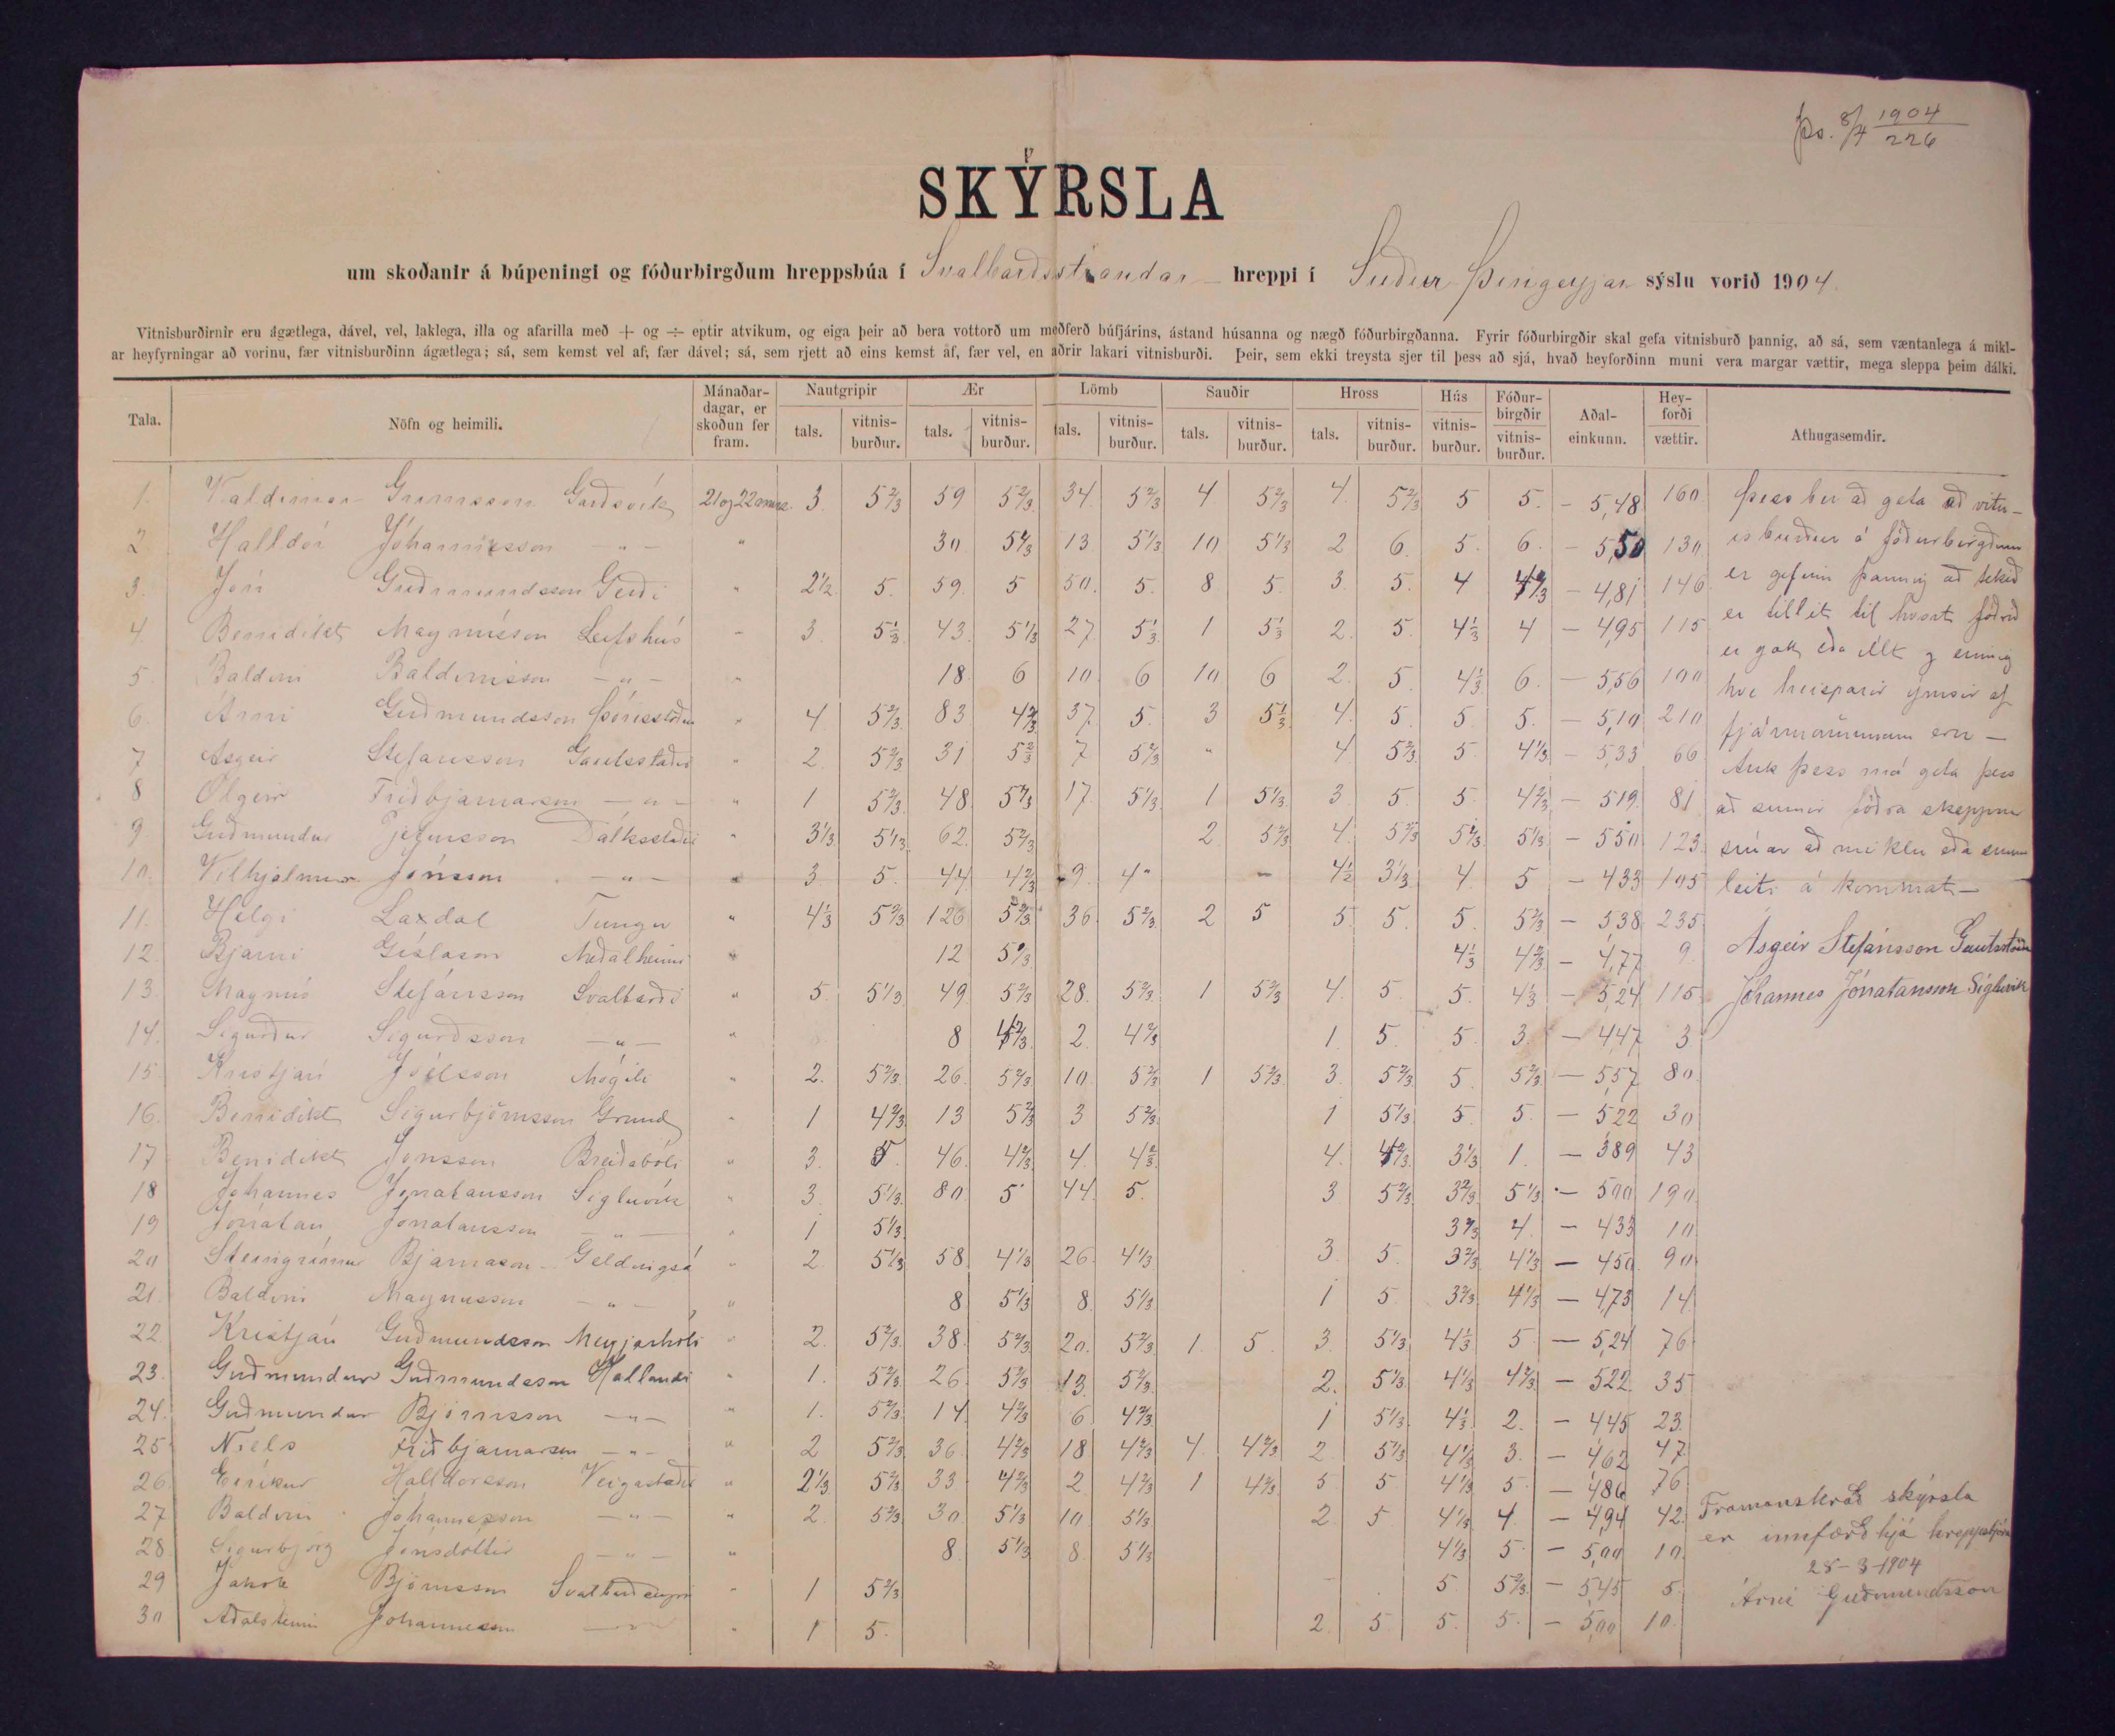 Þs. 8/4 1904
226
SKÝRSLA
um skoðanir á búpeningi og fóðurbirgðum hreppsbúa í Svalbarðsstrandar hreppi í Suður-Þingeyjar sýslu vorið 1904.
Vitnisburðirnir eru ágætlega, dável, vel, laklega, illa og afarilla með + og ÷ eptir atvikum, og eiga þeir að bera vottorð um meðferð búfjárins, ástand húsanna og nægð fóðurbirgðanna. Fyrir fóðurbirgðir skal gefa vitnisburð þannig, að sá, sem væntanlega á mikl-
ar heyfyrningar að vorinu, fær vitnisburðinn ágætlega; sá, sem kemst vel af, fær dável; sá, sem rjett að eins kemst af, fær vel, en aðrir lakari vitnisburði. Þeir, sem ekki treysta sjer til þess að sjá, hvað heyforðinn muni vera margar vættir, mega sleppa þeim dálki.
Tala. Nöfn og heimili. Mánaðar-dagar, er skoðun fer fram. Nautgripir tals. vitnis-burður. Ær tals. vitnis-burður. Lömb tals. vitnis-burður. Sauðir tals. vitnis-burður. Hross tals. vitnis-burður. Hús vitnis-burður. Fóður-birgðir vitnis-burður. Aðal-einkunn. Hey-forði vættir. Athugasemdir.
1. Valdimar Grímsson Garðsvík 21 og 22 mars. 3. 5 2/3 59 5 2/3 34 5 2/3 4 5 2/3 4. 5 2/3 5 5. – 5,48 160
2 Halldór Jóhannesson –"– " 30 5 2/3 13 5 1/3 10 5 1/3 2 6. 5. 6. – 5,50 130
3. Jón Guðmundsson Gerði " 2 1/2. 5. 59. 5 50. 5. 8 5. 3. 5. 4 4 2/3 – 4,81 146
4. Benidikt Magnússon Leifshús – 3. 5 1/3 43. 5 1/3 27 5 1/3 1 5 1/3 2. 5. 4 1/3 4 – 4,95 115
5. Baldvin Baldvinsson –"– " 18. 6 10 6 10 6 2. 5 4 1/3 6. – 5,56 100
6. Árni Guðmundsson Þórisstöðum " 4 5 2/3 83 4 2/3 37 5. 3 5 1/3 4. 5 5. 5. – 5,10 210
7 Asgeir Stefansson Gautsstaðir " 2. 5 2/3 31 5 2/3 7 5 2/3 " 4 5 2/3 5 4 1/3 – 5,33 66
8 Olgeir Friðbjarnarson –"– " 1 5 2/3 48 5 2/3 17. 5 1/3 1 5 1/3 3 5 5. 4 2/3 – 519 81
9 Guðmundur Pjetursson Dálksstaðir " 3 1/3 5 1/3 62. 5 2/3 2. 5 2/3 4. 5 2/3 5 2/3 5 1/3 – 550 123.
10. Vilhjálmur Jónsson –"– " 3 5. 44 4 2/3 9 4" 4 1/2 3 1/3 4 5 – 433 105
11. Helgi Laxdal Tungu " 4 1/3 5 2/3 126 5 2/3 36 5 2/3 2 5 5 5. 5. 5 2/3 – 5,38 235
12. Bjarni Gíslason Meðalheimi " 12 5 2/3 4 1/3 4 2/3 – 4,77 9.
13. Magnús Stefánsson Svalbarði " 5. 5 1/3 49 5 2/3 28. 5 2/3 1 5 2/3 4. 5 5. 4 1/3 – 5,24 115
14. Sigurður Sigurðsson –"– " 8 4 2/3 2. 4 2/3 1. 5 5 3. – 447 3
15 Kristján Jóelsson Mógili " 2. 5 2/3 26. 5 2/3 10 5 2/3 1 5 2/3 3. 5 2/3 5. 5 2/3 – 557 80.
16. Benidikt Sigurbjörnsson Grund " 1 4 2/3 13 5 2/3 3 5 2/3 1 5 1/3 5. 5. – 522 30
17 Benidikt Jónsson Breiðabóli " 3. 5. 46. 4 2/3 4. 4 2/3 4. 4 2/3 3 1/3 1. – 389 43
18 Johannes Jonatansson Sigluvík " 3. 5 1/3 80. 5 44 5. 3 5 2/3 3 2/3 5 1/3 – 500 190
19 Jónatan Jonatansson –"– " 1 5 1/3 3 2/3 4 – 433 10
20 Steingrímur Bjarnason Geldingsá " 2. 5 1/3 58. 4 1/3 26. 4 1/3 3. 5. 3 2/3 4 1/3 – 450 90
21. Baldvin Magnusson –"– " 8 5 1/3 8. 5 1/3 1 5 3 2/3 4 1/3 – 4,73 14
22. Kristján Guðmundsson Meyjarhóli " 2. 5 2/3 38. 5 2/3 20. 5 2/3 1. 5. 3. 5 1/3 4 1/3 5 – 5,24 76
23. Guðmundur Guðmundsson Hallandi " 1. 5 2/3 26 5 2/3 13. 5 2/3 2. 5 1/3 4 1/3 4 2/3 – 522 35
24. Guðmundur Björnsson –"– " 1. 5 2/3 14. 4 2/3 6 4 2/3 1 5 1/3 4 1/3 2. – 445 23.
25 Niels Friðbjarnarson –"– " 2 5 2/3 36. 4 2/3 18 4 2/3 4. 4 2/3 2. 5 1/3 4 1/3 3. – 462 47
26 Eiríkur Halldorsson Veigastaðir " 2 1/3 5 2/3 33 4 2/3 2. 4 2/3 1 4 2/3 5 5 4 1/3 5 – 486 76
27 Baldvin Johannesson –"– " 2. 5 2/3 30 5 1/3 10 5 1/3 2. 5. 4 1/3 4. – 494 42.
28. Sigurbjörg Jónsdóttir –"– " 8. 5 1/3 8 5 1/3 4 1/3 5 – 5,00 10.
29 Jakob Björnsson Svalbarðseyri " 1 5 2/3 5. 5 2/3 – 545 5.
30 Aðalsteinn Johannesson –"– " 1 5. 2. 5. 5. 5. – 5,00 10.
Þess ber að geta að vitn-
isburður á fóðurbirgðum
er gefinn þannig að tekið
er tillit til hvort fóðrið
er gott eða illt og einnig
hve heysparir ýmsir af
fjármönnunum eru –
Auk þess má geta þess
að sumir fóðra skeppnur
sínar að miklu eða sumu
leiti á kornmat –
Ásgeir Stefánsson Gautsstöðum
Jóhannes Jónatansson Sigluvík
Framanskráð skýrsla
er innfærð hjá hreppstjóra
28–3–1904
Árni Guðmundsson